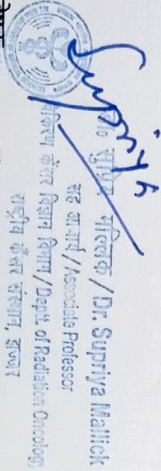 डॉ० सुप्रिया मल्लिक / Dr. Supriya Mallick
सह आचार्य / Associate Professor
विकिरण कैंसर विज्ञान विभाग / Deptt. of Radiation Oncology
राष्ट्रीय कैंसर संस्थान, झज्जर